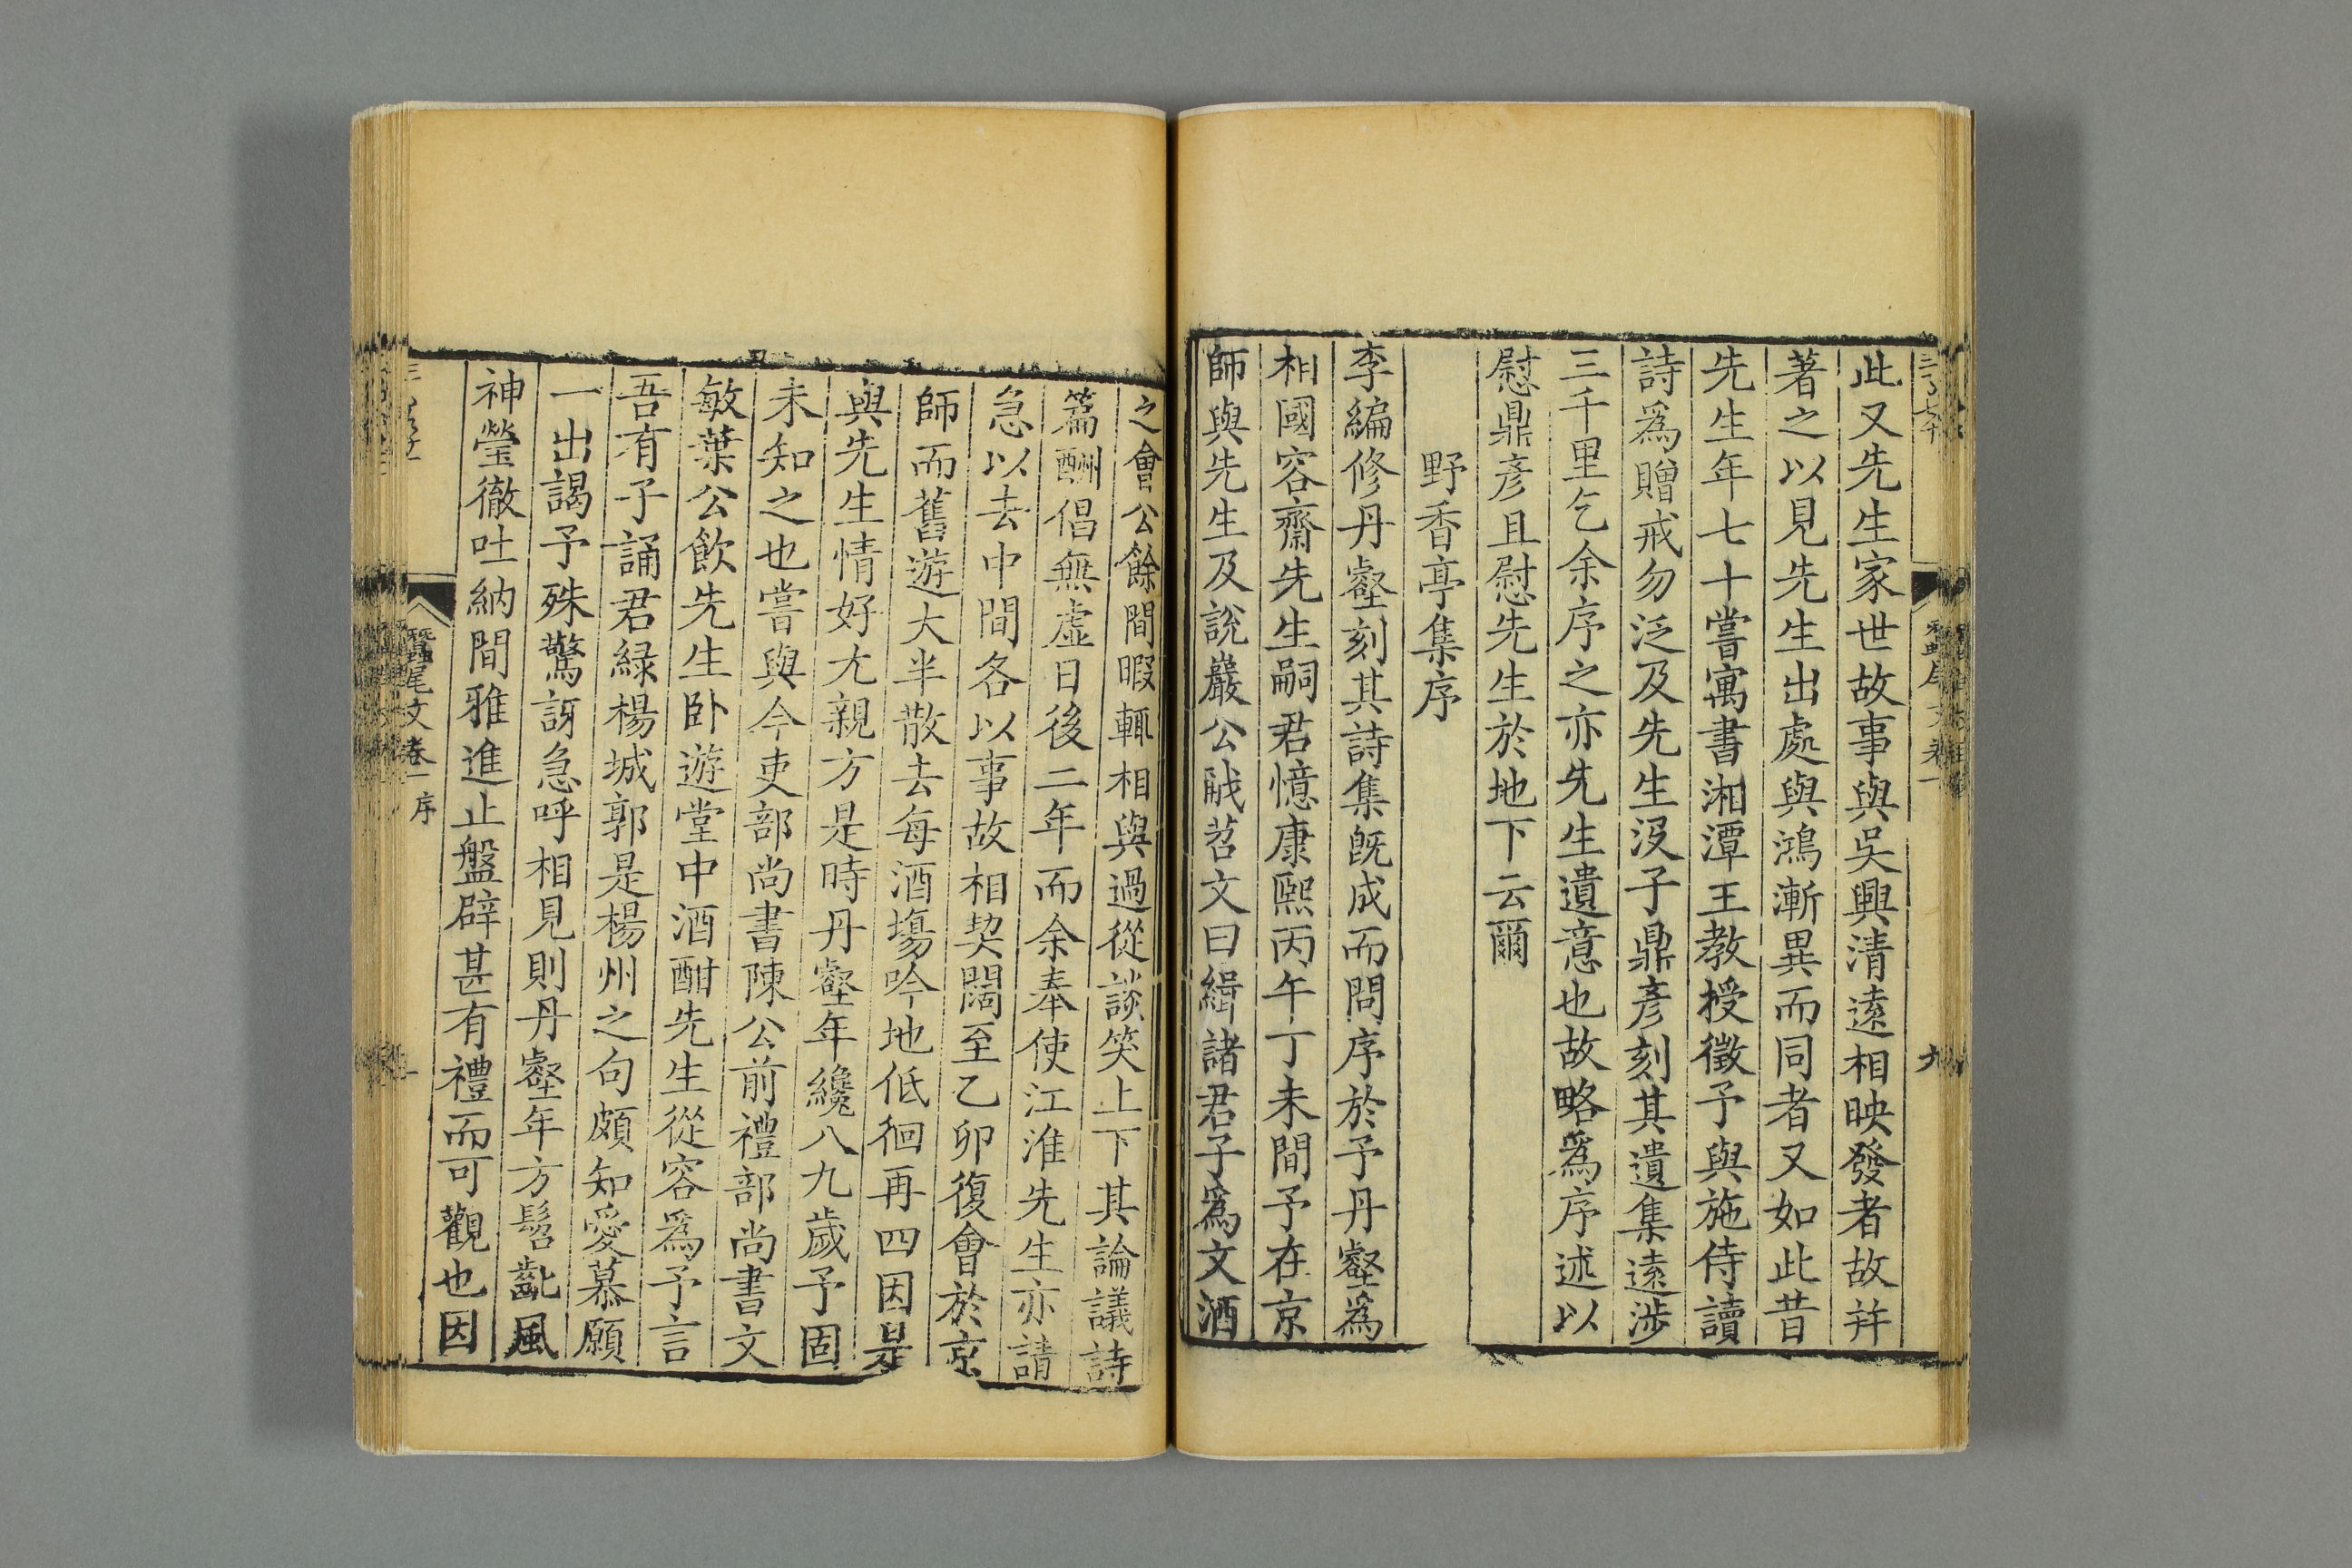 此又先生家世故事與吳興清遠相映發者故并
著之以見先生出處與鴻漸異而同者又如此昔
先生年七十嘗寓書湘潭王教授徵予與施侍讀
詩爲贈戒勿泛及先生沒子鼎彥刻其遺集遠涉
三千里乞余序之亦先生遺意也故略爲序述以
慰鼎彥且慰先生於地下云爾
野香亭集序
李編修丹壑刻其詩集旣成而問序於予丹壑爲
相國容齋先生嗣君憶康熙丙午丁未間予在京
師與先生及說巖公㦷苕文曰緝諸君子爲文酒
九
之會公餘間暇輒相與過從談笑上下其論議詩
篇酬倡無虛日後二年而余奉使江淮先生亦請
急以去中間各以事故相契闊至乙卯復會於京
師而舊遊大半散去每酒塲吟地低徊再四因是
與先生情好尤親方是時丹壑年纔八九歲予固
未知之也嘗與今吏部尚書陳公前禮部尚書文
敏葉公飲先生卧遊堂中酒酣先生從容爲予言
吾有子誦君緑楊城郭是楊州之句頗知愛慕願
一出謁予殊驚訝急呼相見則丹壑年方髫齔風
神瑩徹吐納間雅進止盤辟甚有禮而可觀也因
蠶尾文卷一 序